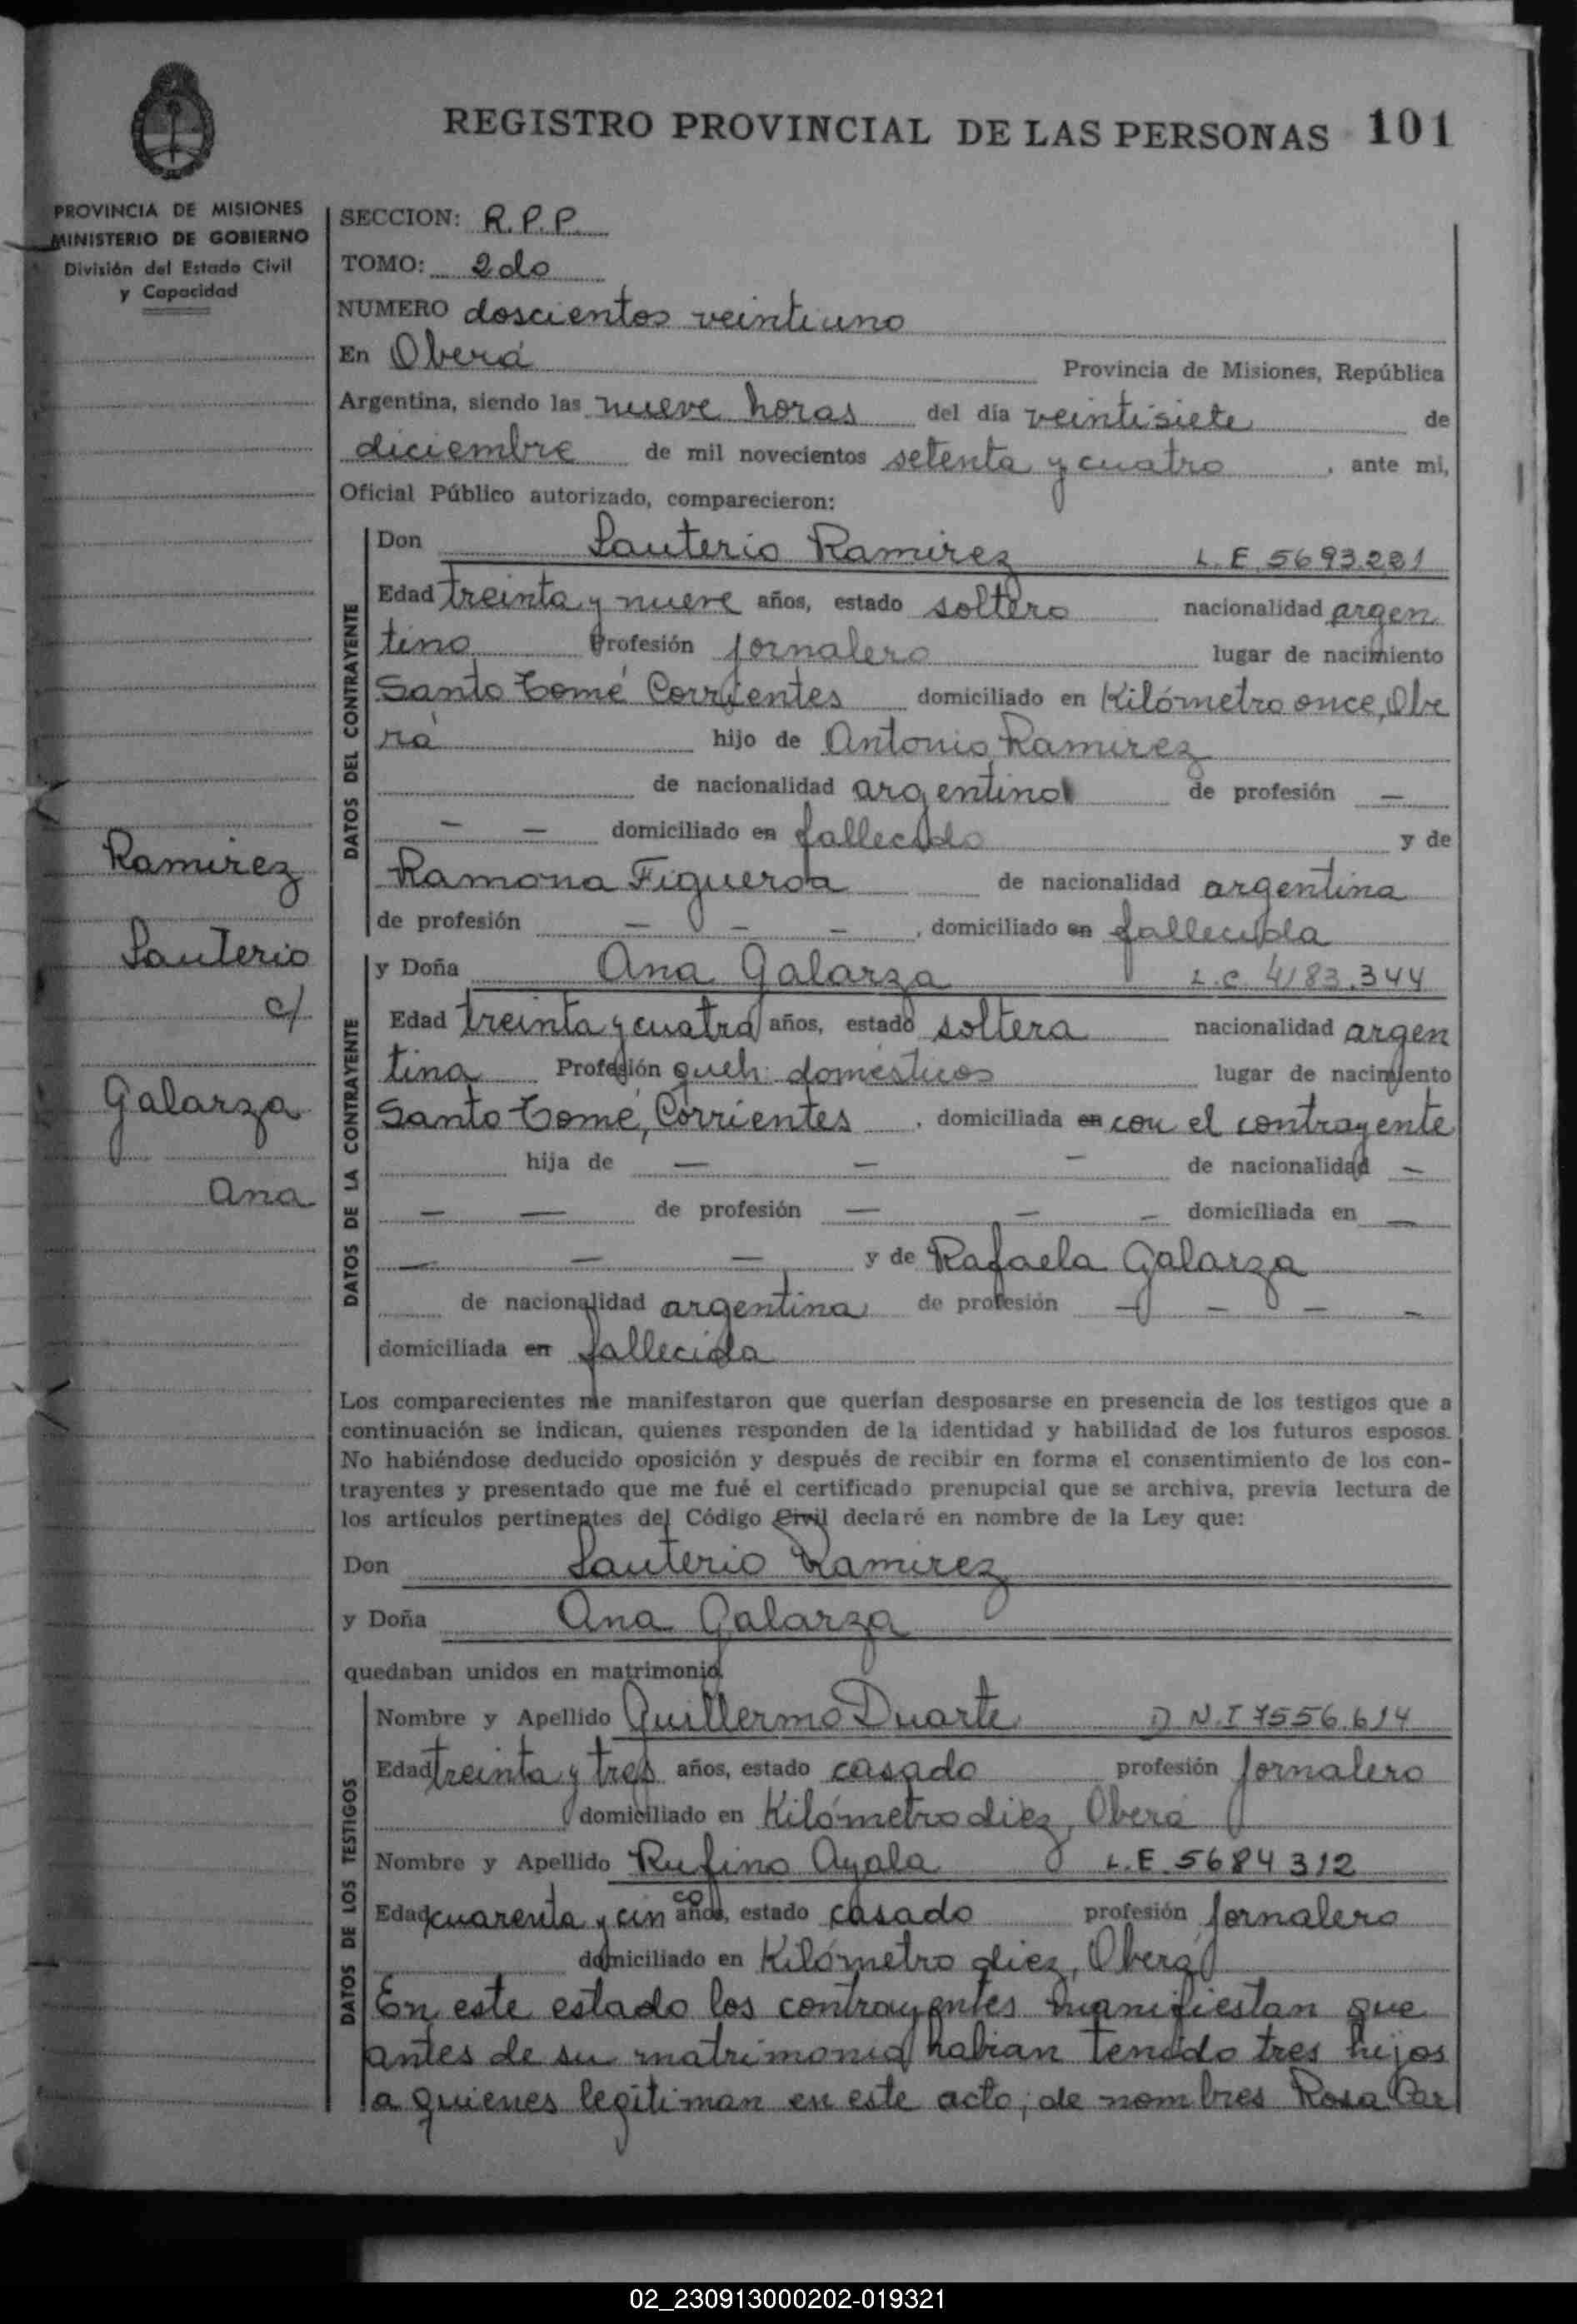 REGISTRO PROVINCIAL DE LAS PERSONAS 101
PROVINCIA DE MISIONES
MINISTERIO DE GOBIERNO
División del Estado Civil
y Capacidad
SECCION: R.P.P.
TOMO: 2do
NUMERO doscientos veintiuno
En Oberá Provincia de Misiones, República
Argentina, siendo las nueve horas del día veintisiete de
diciembre de mil novecientos setenta y cuatro, ante mi,
Oficial Público autorizado, comparecieron:
DATOS DEL CONTRAYENTE
Don Lauterio Ramirez L.E. 5693.221
Edad treinta y nueve años, estado soltero nacionalidad argen
tino Profesión jornalero lugar de nacimiento
Santo Tomé Corrientes domiciliado en Kilómetro once, Obe
rá hijo de Antonio Ramirez
de nacionalidad argentino de profesión —
— — domiciliado en fallecido y de
Ramona Figueroa de nacionalidad argentina
de profesión — — —, domiciliado en fallecida
Ramirez
Lauterio
c/
Galarza
Ana
DATOS DE LA CONTRAYENTE
y Doña Ana Galarza L.C. 4183.344
Edad treinta y cuatro años, estado soltera nacionalidad argen
tina Profesión queh. domésticos lugar de nacimiento
Santo Tomé, Corrientes, domiciliada en con el contrayente
hija de — — — de nacionalidad —
— — de profesión — — — domiciliada en —
— — — y de Rafaela Galarza
de nacionalidad argentina de profesión — — — —
domiciliada en fallecida
Los comparecientes me manifestaron que querían desposarse en presencia de los testigos que a
continuación se indican, quienes responden de la identidad y habilidad de los futuros esposos.
No habiéndose deducido oposición y después de recibir en forma el consentimiento de los con-
trayentes y presentado que me fué el certificado prenupcial que se archiva, previa lectura de
los artículos pertinentes del Código Civil declaré en nombre de la Ley que:
Don Lauterio Ramirez
y Doña Ana Galarza
quedaban unidos en matrimonio.
DATOS DE LOS TESTIGOS
Nombre y Apellido Guillermo Duarte D.N.I 7556.614
Edad treinta y tres años, estado casado profesión jornalero
domiciliado en Kilómetro diez, Oberá
Nombre y Apellido Rufino Ayala L.E. 5684312
Edad cuarenta y cinco años, estado casado profesión jornalero
domiciliado en Kilómetro diez, Oberá
En este estado los contrayentes manifiestan que
antes de su matrimonio habian tenido tres hijos
a quienes legitiman en este acto; de nombres Rosa Car
02_230913000202-019321